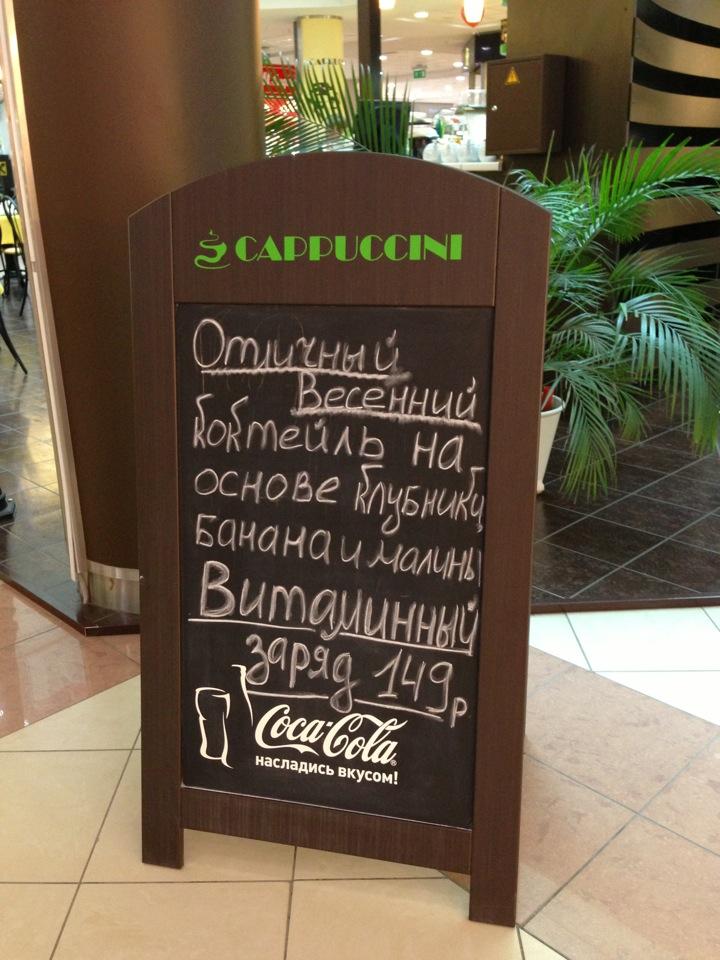 CAPPUCCINI
Отличный
Весенний
коктейль на
основе клубники
банана и малины
Витаминный
заряд 149р
Coca-Cola®
насладись вкусом!